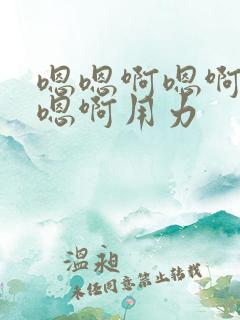 嗯嗯啊嗯啊
嗯啊用力
温昶
未经同意禁止转载